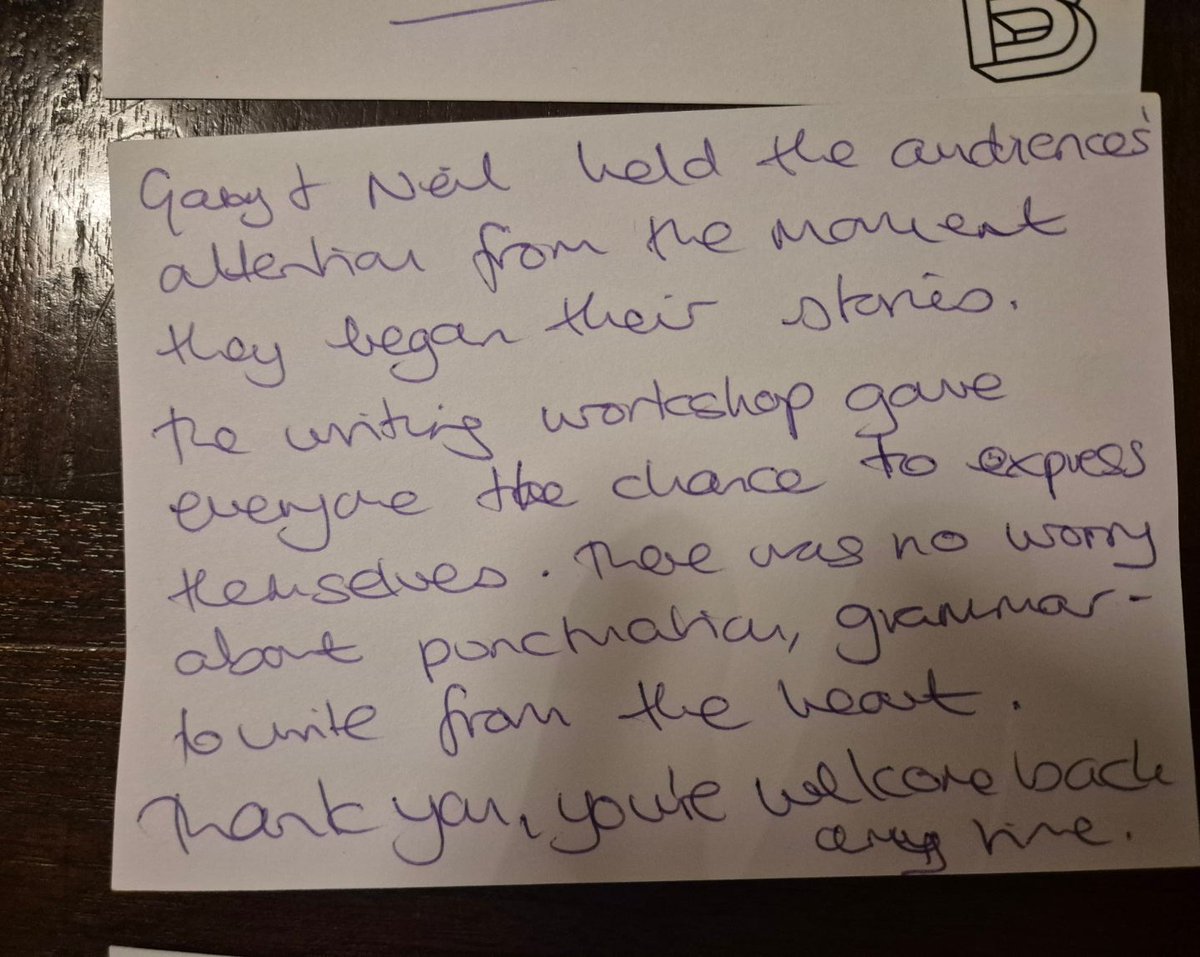 B
Gary & Neil held the audiences'
attention from the moment
they began their stories.
the writing workshop gave
everyone the chance to express
themselves. There was no worry
about punctuation, grammar -
to write from the heart.
Thank you, you're welcome back
any time.